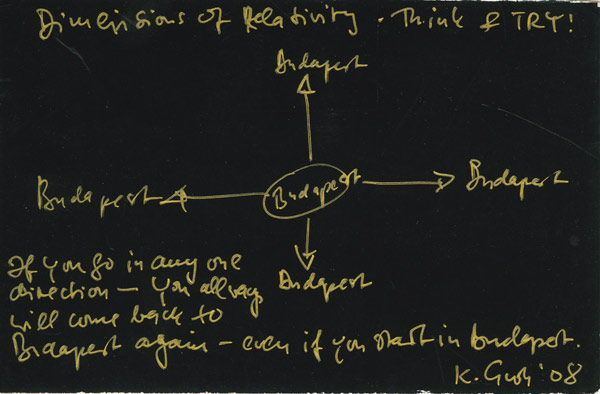 Dimensions of Relativity • Think & TRY!
Budapest
Budapest
Budapest
Budapest
Budapest
If you go in any one
direction – you allways
will come back to
Budapest again – even if you start in budapest.
K. Groh '08